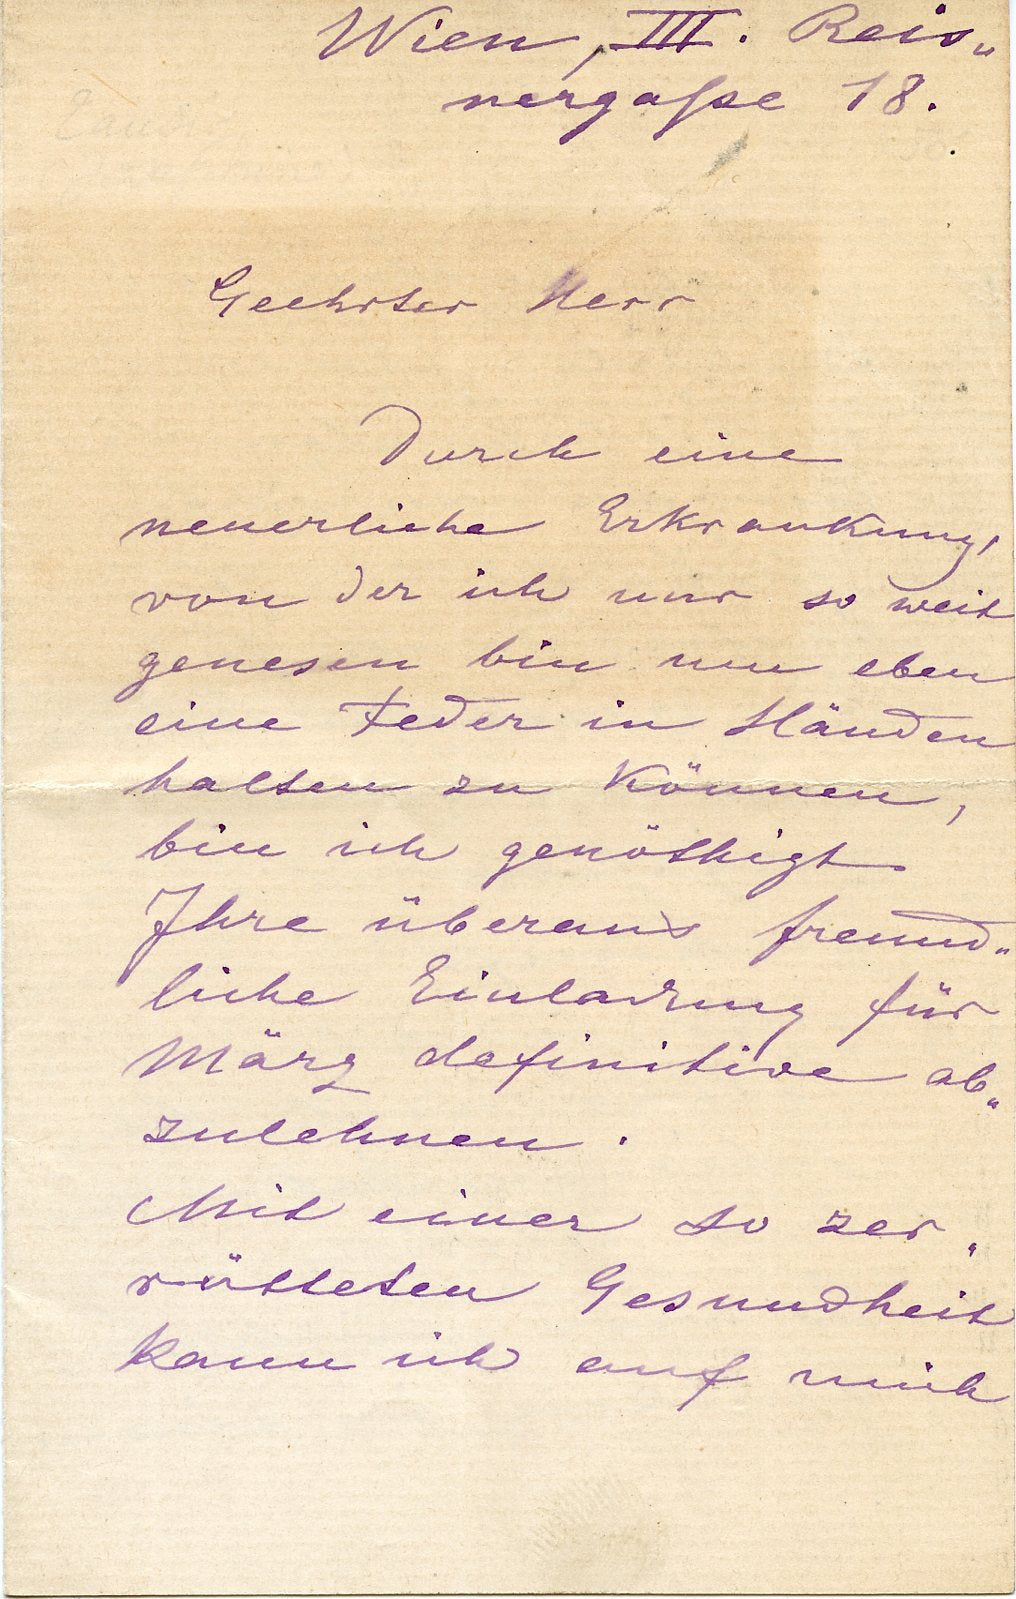 Wien, III. Reis„
nergaße 18.
Geehrter Herr
Durch eine
neuerliche Erkrankung,
von der ich nur so weit
genesen bin um eben
eine Feder in Händen
halten zu können,
bin ich genöthigt
Ihre überaus freund„
liche Einladung für
März definitive ab„
zulehnen.
Mit einer so zer„
rütteten Gesundheit
kann ich auf mich